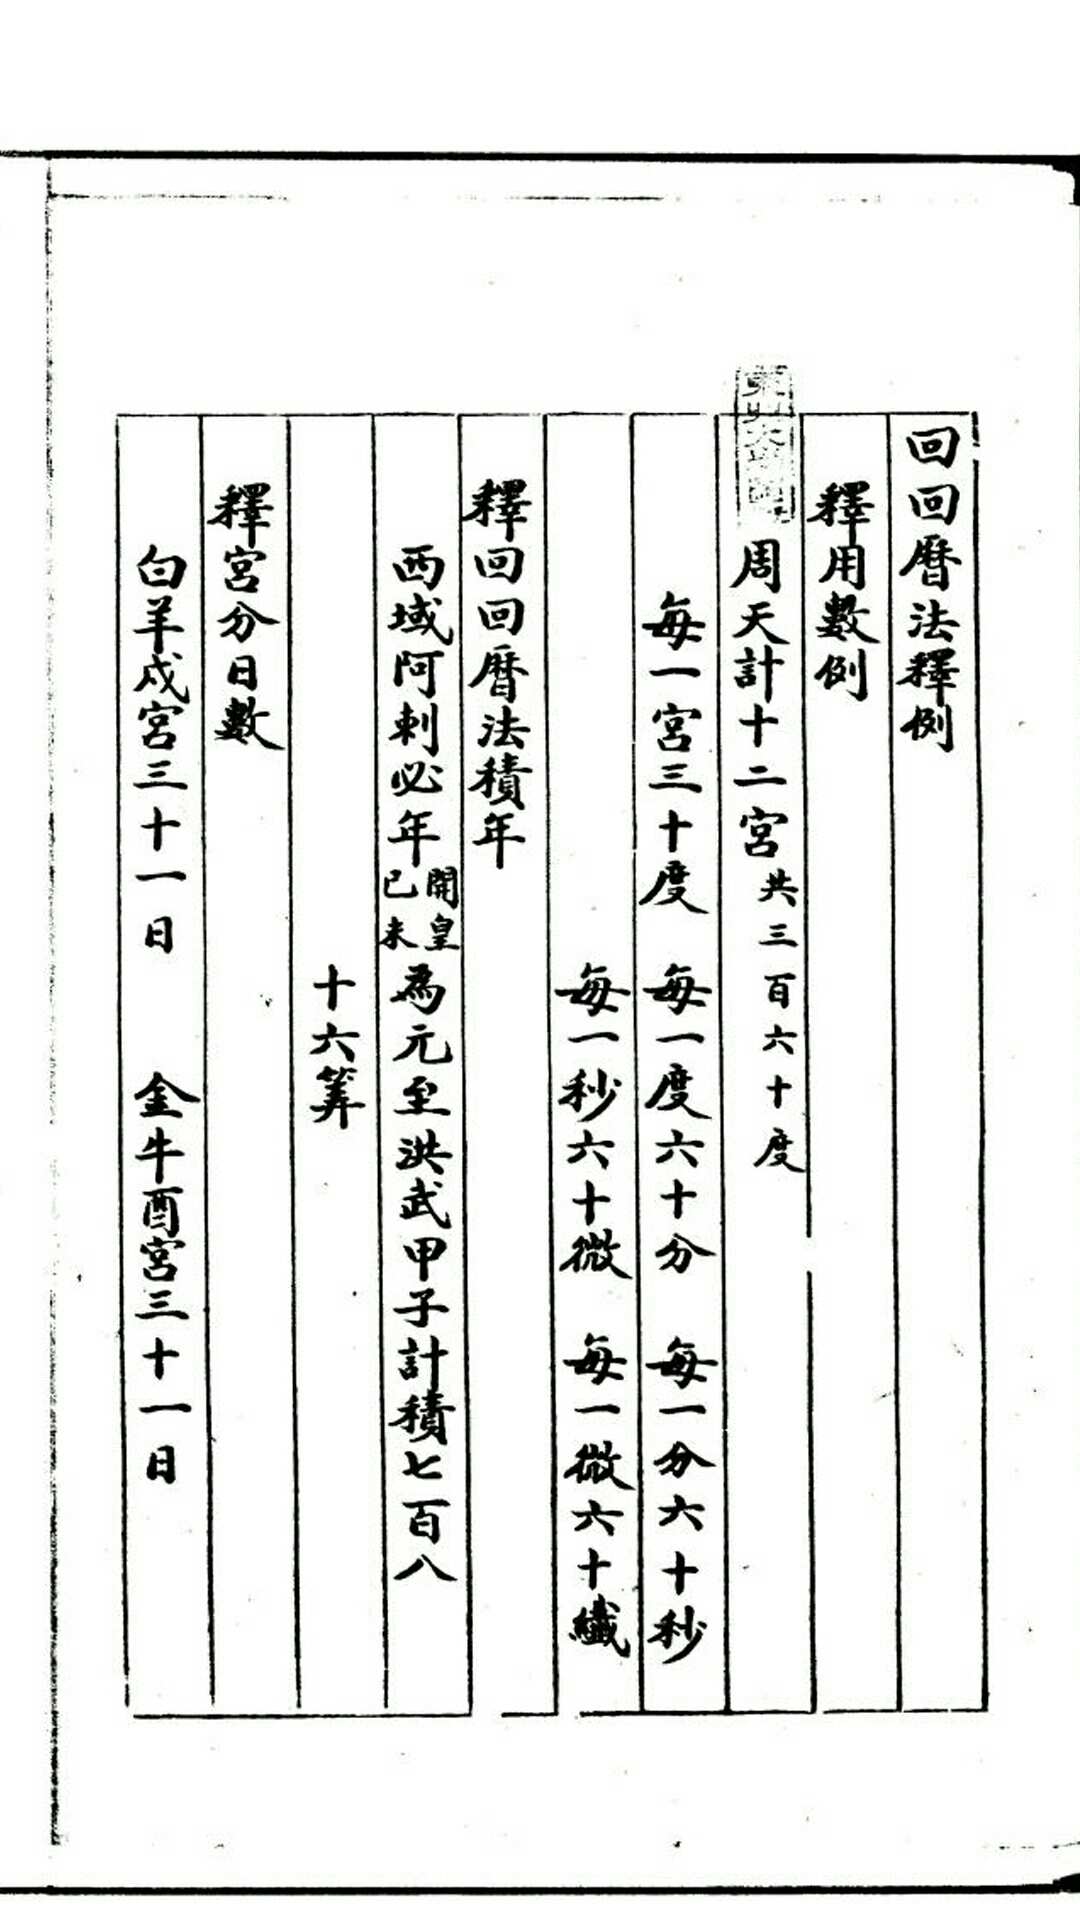 回回曆法釋例
釋用數例
周天計十二宮共三百六十度
每一宮三十度 每一度六十分 每一分六十秒
每一秒六十微 每一微六十纖
釋回回曆法積年
西域阿剌必年開皇己未為元至洪武甲子計積七百八
十六筭
釋宮分日數
白羊戌宮三十一日 金牛酉宮三十一日